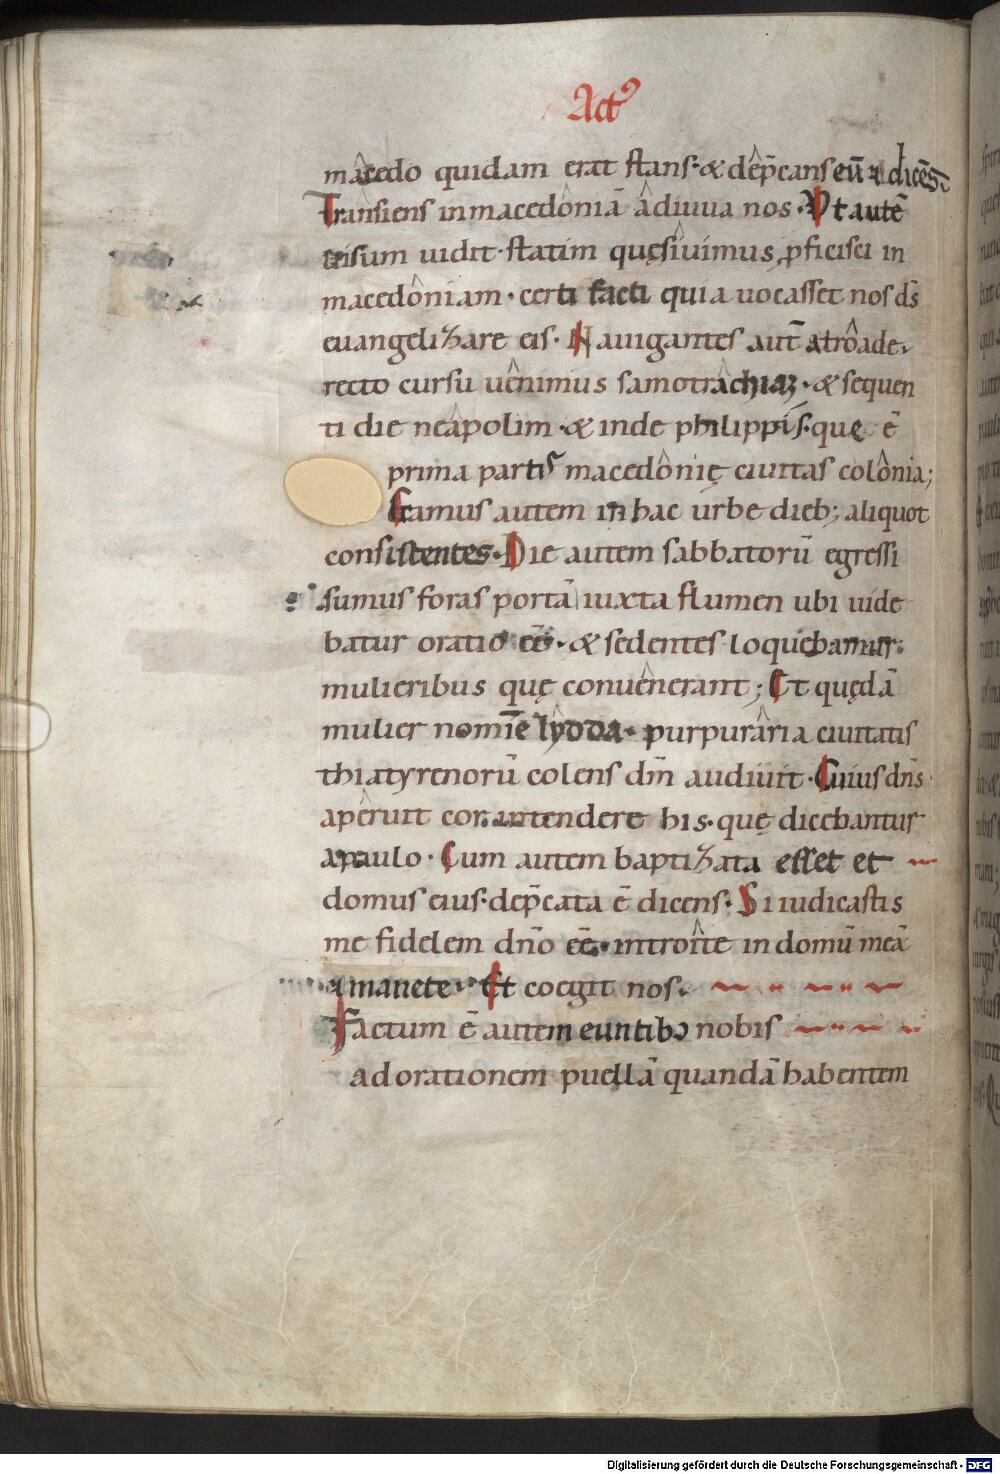 Actꝰ
macedo quidam erat stans· & dep̄cans eū ⁊ dicēs·
Transiens in macedoniā adiuua nos· Vt autē
uisum uidit· statim quęsiuimus ꝓficisci in
macedoniam· certi facti quia uocasset nos d̄s
euangelizare eis· Nauigantes aut̄ a troade·
recto cursu uenimus samotrachiaʒ· & sequen
ti die neapolim· & inde philippis· quę ē
prima partis macedonię ciuitas colonia;
Eramus autem in hac urbe dieb; aliquot
consistentes· Die autem sabbatorū egressi
sumus foras portā iuxta flumen ubi uide
batur oratio eē· & sedentes loquebamur
mulieribus quę conuenerant; Et quędā
mulier nomīe lydda· purpuraria ciuitatis
thiatyrenorū colens dm̄ audiuit· Cuius dn̄s
aperuit cor intendere his· quę dicebantur
a paulo· Cum autem baptizata esset et
domus eius· dep̄cata ē dicens· Si iudicastis
me fidelem dn̄o eē· introite in domū meā
⁊ manete· Et coegit nos·
Factum ē autem euntibꝰ nobis
ad orationem puellā quandā habentem
Digitalisierung gefördert durch die Deutsche Forschungsgemeinschaft - DFG